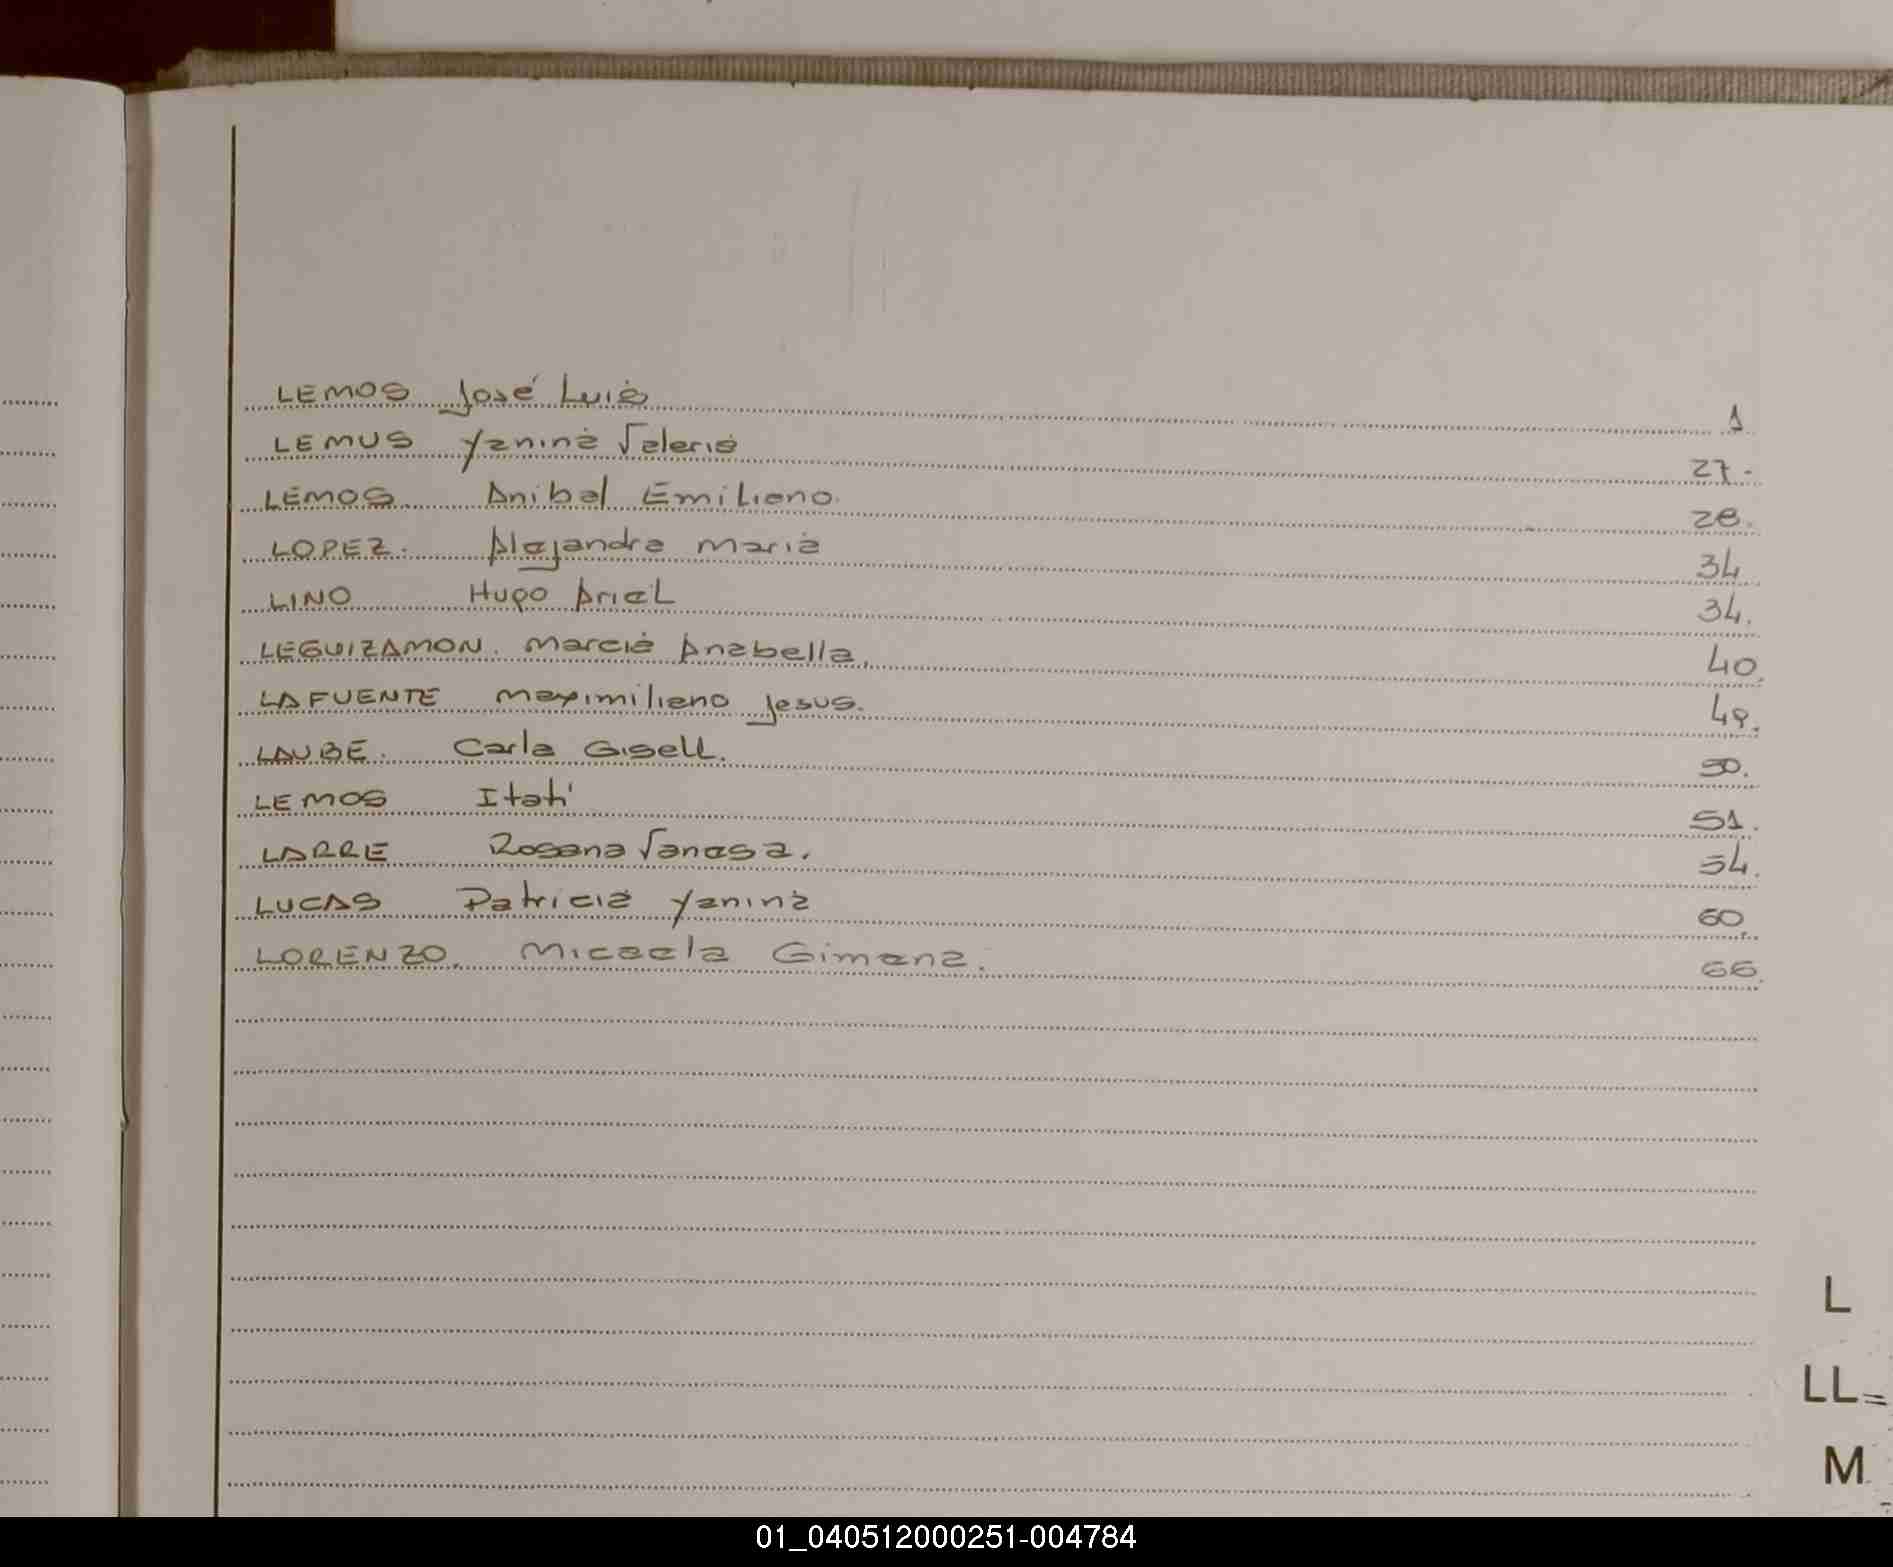 LEMOS José Luis 1
LEMUS Yanina Valeria 27.
LEMOS. Anibal Emiliano. 28.
LOPEZ. Alejandra Maria 34
LINO Hugo Ariel 34.
LEGUIZAMON. Marcia Anabella. 40.
LAFUENTE Maximiliano Jesus. 49.
LAUBE. Carla Gisell. 50.
LEMOS Itatí 51.
LARRE Rosana Vanesa. 54.
LUCAS Patricia Yanina 60.
LORENZO. Micaela Gimena. 66.
L
LL=
M
01_040512000251-004784